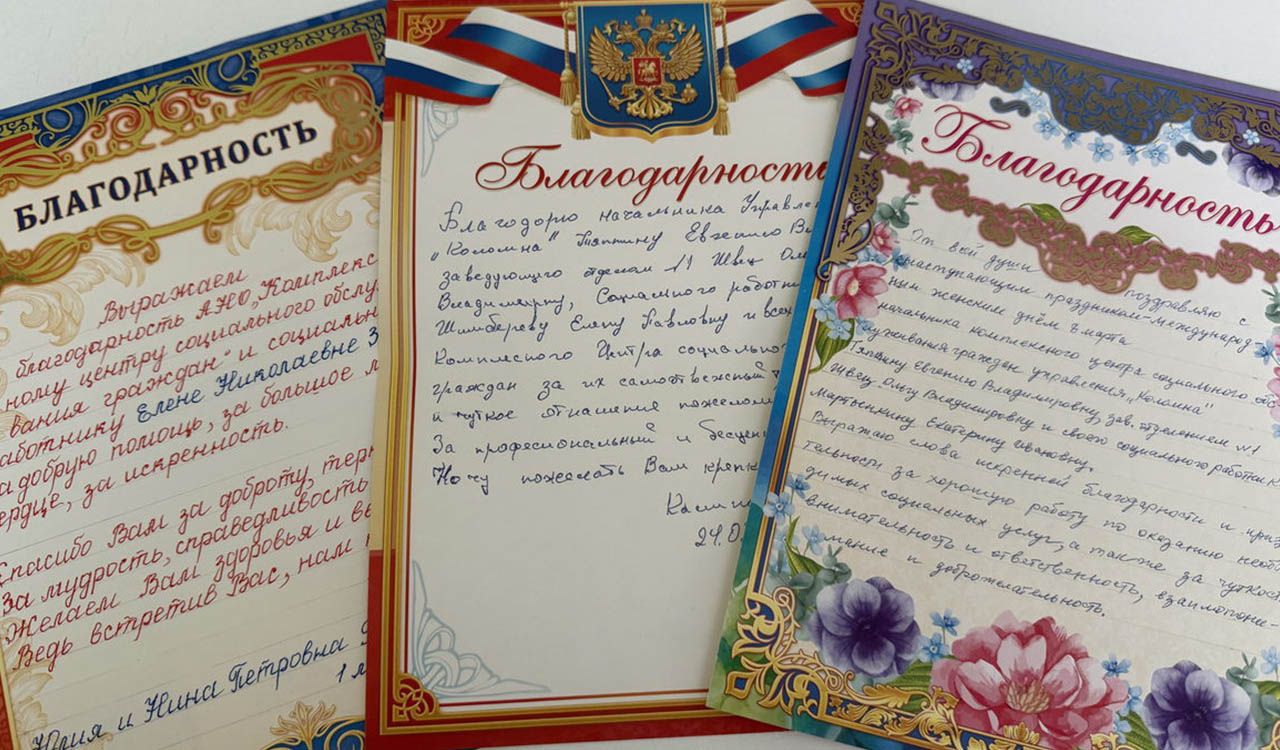 БЛАГОДАРНОСТЬ
Выражаем
благодарность АНО „Комплекс
ному центру социального обслу
вания граждан" и социальн
аботнику Елене Николаевне З
а добрую помощь, за большое
ердце, за искренность.
Спасибо Вам за доброту, тер
За мудрость, справедливость
Желаем Вам здоровья и
Ведь встретив Вас, нам
Юлия и Нина Петровна
1
Благодарность
Благодорю начальника Управле
„Коломна" Тяпкину Евгению Вл
заведующего отделом №1 Швец Ол
Владимирну, Социального работн
Елену Павловну и всех
Комплесного Центра социально
граждан за их самоотвежсный
и чуткое отнашение
За професиональный и бесцен
Хочу пожелать Вам крепк
24.0
Благодарность
От всей души поздравляю с
наступающим праздником-международ-
ным женским днём 8 марта
начальника комплексного центра социального обс-
луживания граждан управления „Коломна"
Тяпкину Евгению Владимировну, зав. отделением №1
Швец Ольгу Владимировну и своего социального работника
Мартынкину Екатерину Ивановну.
Выражаю слова искренней благодарности и приз-
тельности за хорошую работу по оказанию необхо-
димых социальных услуг, а также за чуткость
внимательность и ответственность, взаимопони-
мание и доброжелательность.